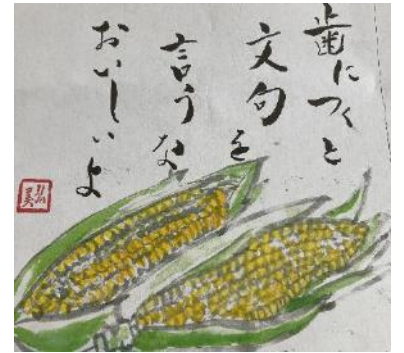 歯につくと
文句を
言うな
おいしいよ